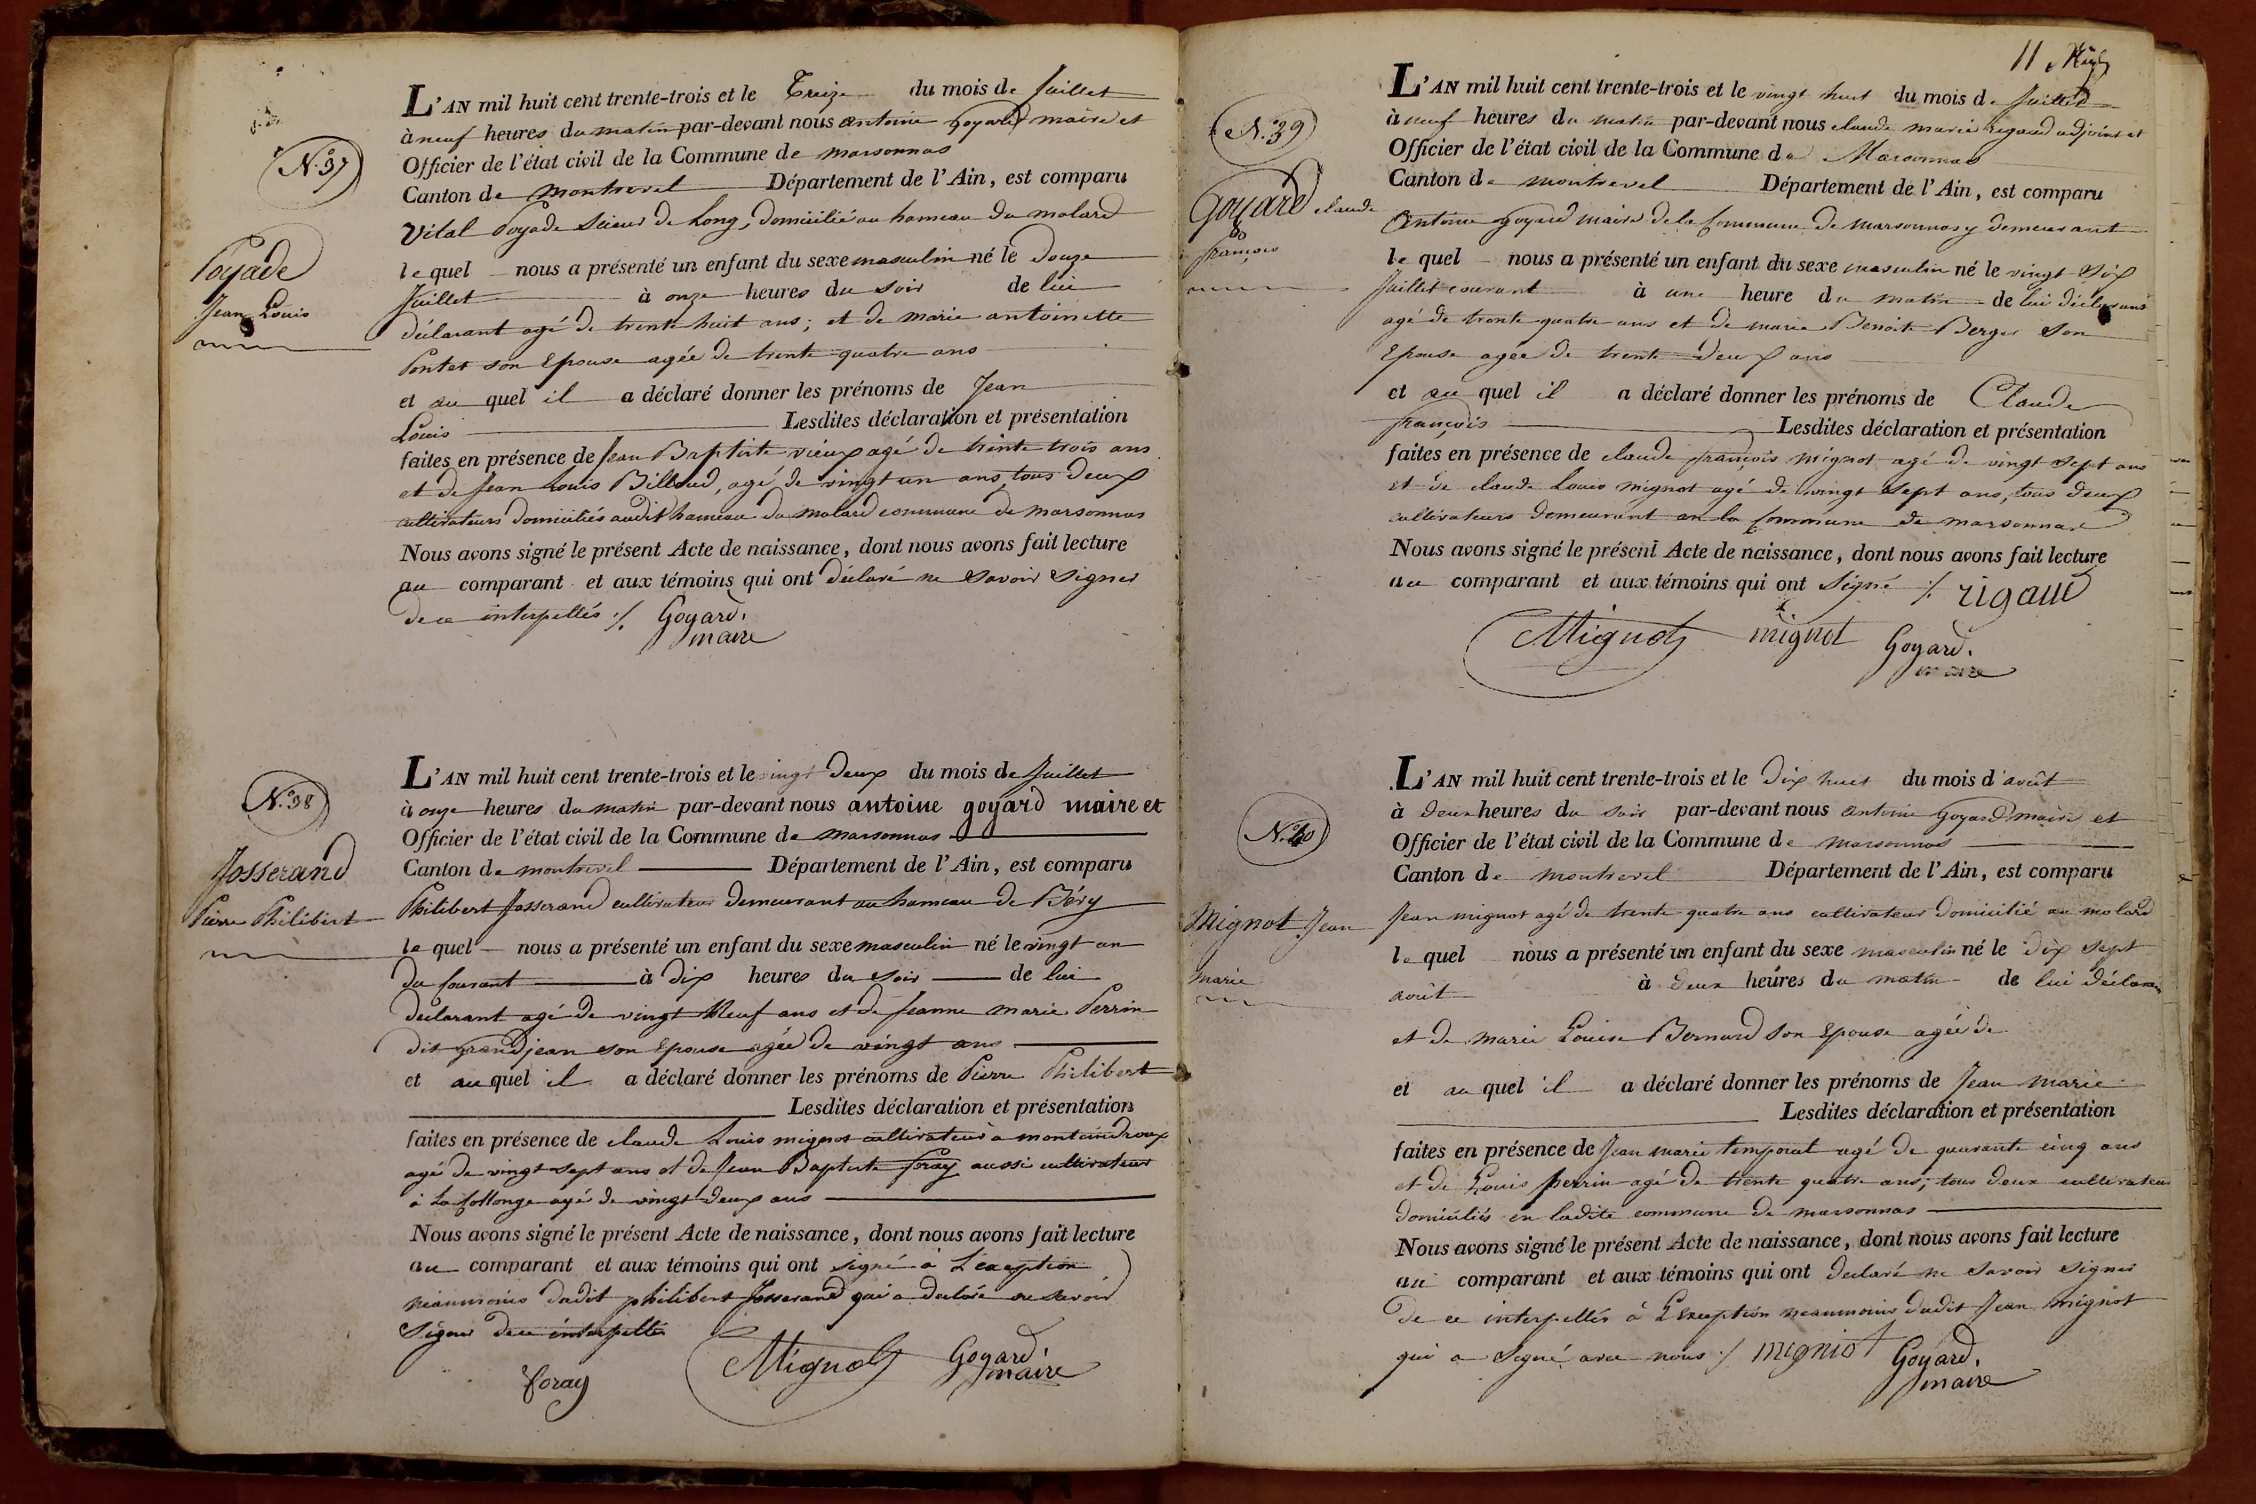 N.° 37
Poyade
Jean Louis
L'AN mil huit cent trente-trois et le Treize du mois de Juillet
à neuf heures du matin par-devant nous antoine goyard maire et
Officier de l'état civil de la Commune de marsonnas
Canton de montrevel Département de l'Ain, est comparu
Vital Poyade Scieur de Long, domicilié au hameau du molard
le quel nous a présenté un enfant du sexe masculin né le Douze
Juillet à onze heures du soir de lui
déclarant agé de trente huit ans; et de marie antoinette
Pontet son Epouse agée de trente quatre ans
et au quel il a déclaré donner les prénoms de Jean
Louis Lesdites déclaration et présentation
faites en présence de Jean Baptiste vieux agé de trente trois ans
et de Jean Louis Billoud, agé de vingt un ans, tous deux
cultivateurs domiciliés audit hameau du molard commune de marsonnas
Nous avons signé le présent Acte de naissance, dont nous avons fait lecture
au comparant et aux témoins qui ont déclaré ne savoir signer
de ce interpellés ./. Goyard.
maire
N.° 38
Josserand
Pierre Philibert
L'AN mil huit cent trente-trois et le vingt deux du mois de Juillet
à onze heures du matin par-devant nous antoine goyard maire et
Officier de l'état civil de la Commune de marsonnas
Canton de montrevel Département de l'Ain, est comparu
Philibert Josserand cultivateur demeurant au hameau de Béry
le quel nous a présenté un enfant du sexe masculin né le vingt un
du Courant à dix heures du soir de lui
déclarant agé de vingt Neuf ans et de Jeanne marie Perrin
dit grandjean son Epouse agée de vingt ans
et au quel il a déclaré donner les prénoms de Pierre Philibert
Lesdites déclaration et présentation
faites en présence de claude Louis mignot cultivateur à
agé de vingt sept ans et de Jean Baptiste foray aussi cultivateur
à La Collonge agé de vingt deux ans
Nous avons signé le présent Acte de naissance, dont nous avons fait lecture
au comparant et aux témoins qui ont signé à L'exception
néanmoins dudit philibert Josserand qui a déclaré ne savoir
Signer de ce interpellé
foray Mignot Goyard
maire
11
N.° 39
Goyard claude
françois
L'AN mil huit cent trente-trois et le vingt huit du mois de Juillet
à neuf heures du matin par-devant nous claude marie rigaud adjoint et
Officier de l'état civil de la Commune de Marsonnas
Canton de montrevel Département de l'Ain, est comparu
Antoine goyard maire de la Commune de marsonnas y demeurant
le quel nous a présenté un enfant du sexe masculin né le vingt Six
Juillet courant à une heure du matin de lui déclarant
agé de trente quatre ans et de marie Benoite Berger son
Epouse agée de trente deux ans
et au quel il a déclaré donner les prénoms de Claude
françois Lesdites déclaration et présentation
faites en présence de claude françois mignot agé de vingt sept ans
et de claude Louis mignot agé de vingt sept ans, tous deux
cultivateurs demeurant en la Commune de marsonnas
Nous avons signé le présent Acte de naissance, dont nous avons fait lecture
au comparant et aux témoins qui ont Signé ./. rigaud
Mignot mignot Goyard.
maire
N.° 40
Mignot Jean
marie
L'AN mil huit cent trente-trois et le dix huit du mois d'août
à deux heures du soir par-devant nous antoine goyard maire et
Officier de l'état civil de la Commune de marsonnas
Canton de montrevel Département de l'Ain, est comparu
Jean mignot agé de trente quatre ans cultivateur domicilié au molard
le quel nous a présenté un enfant du sexe masculin né le dix sept
août à deux heures du matin de lui déclarant
et de marie Louise Bernard son Epouse agée de
et au quel il a déclaré donner les prénoms de Jean marie
Lesdites déclaration et présentation
faites en présence de Jean marie temporal agé de quarante cinq ans
et de Louis perrin agé de trente quatre ans; tous deux cultivateurs
domiciliés en ladite commune de marsonnas
Nous avons signé le présent Acte de naissance, dont nous avons fait lecture
au comparant et aux témoins qui ont déclaré ne savoir signer
de ce interpellés à L'exception néanmoins dudit Jean mignot
qui a Signé avec nous ./. migniot Goyard.
maire